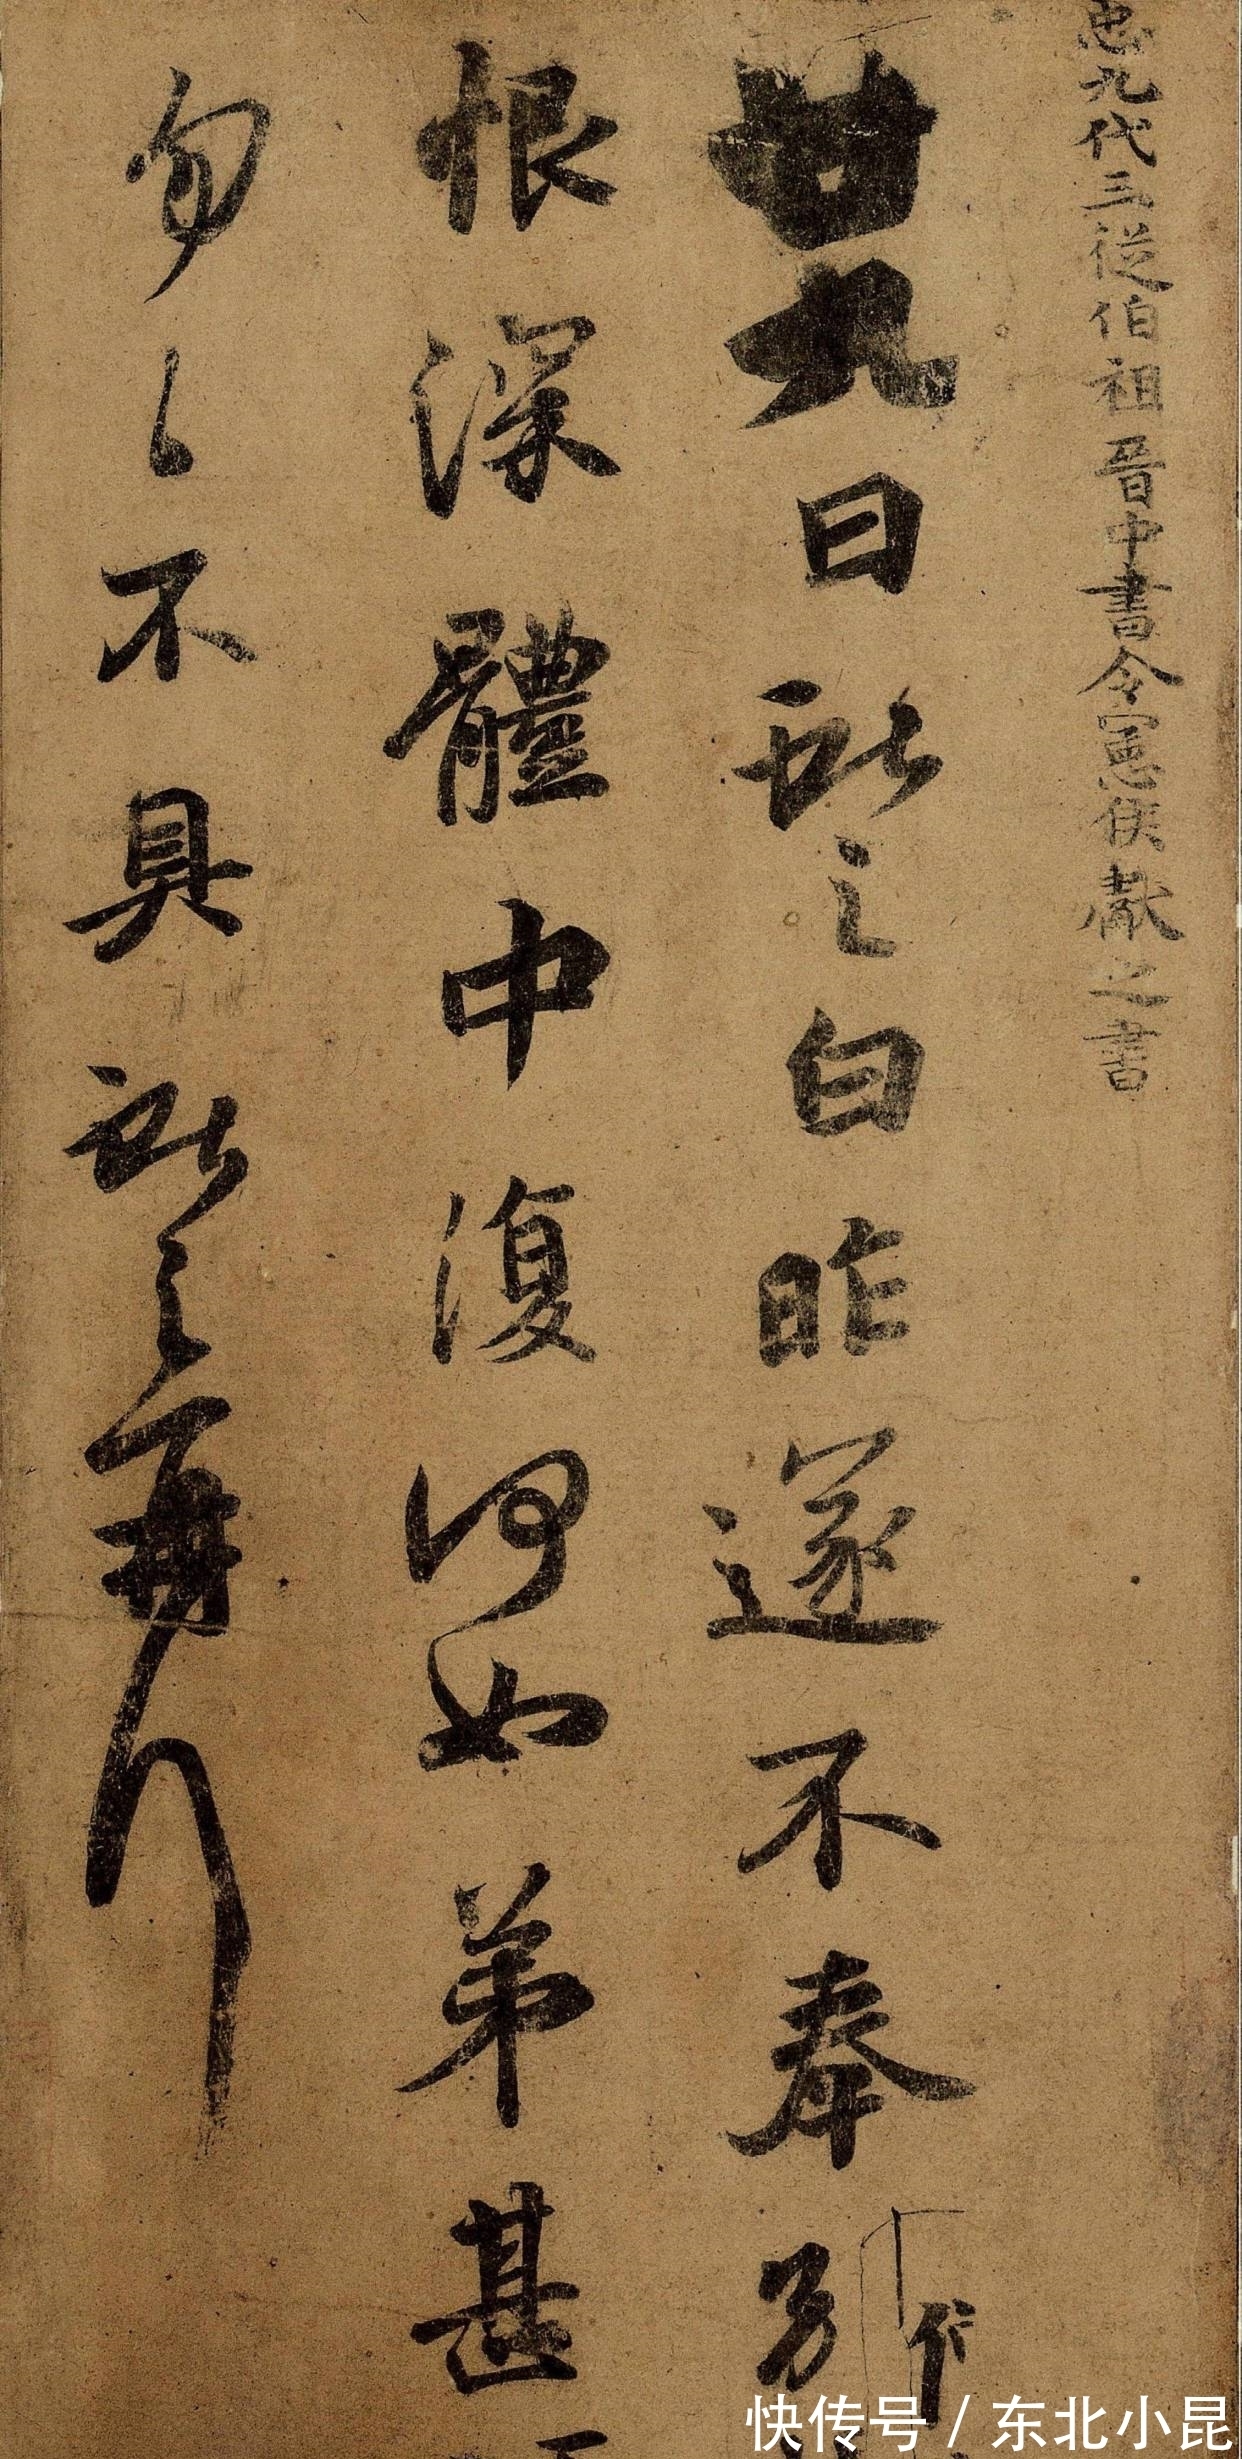 忠九代三從伯祖晉中書令憲侯獻之書
廿九日獻之白昨遂不奉別
恨深體中復何如弟甚
匆々不具獻之再拜
快传号/东北小昆